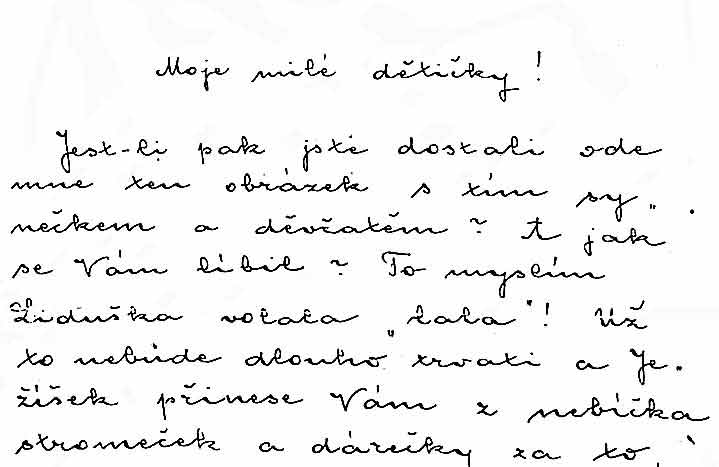 Moje milé dětičky!
Jest-li pak jste dostali ode
mne ten obrázek s tím sy„
nečkem a děvčatem? A jak
se Vám líbil? To myslím
Liduška volala „lala"! Už
to nebude dlouho trvati a Je-
žíšek přinese Vám z nebíčka
stromeček a dárečky za to,